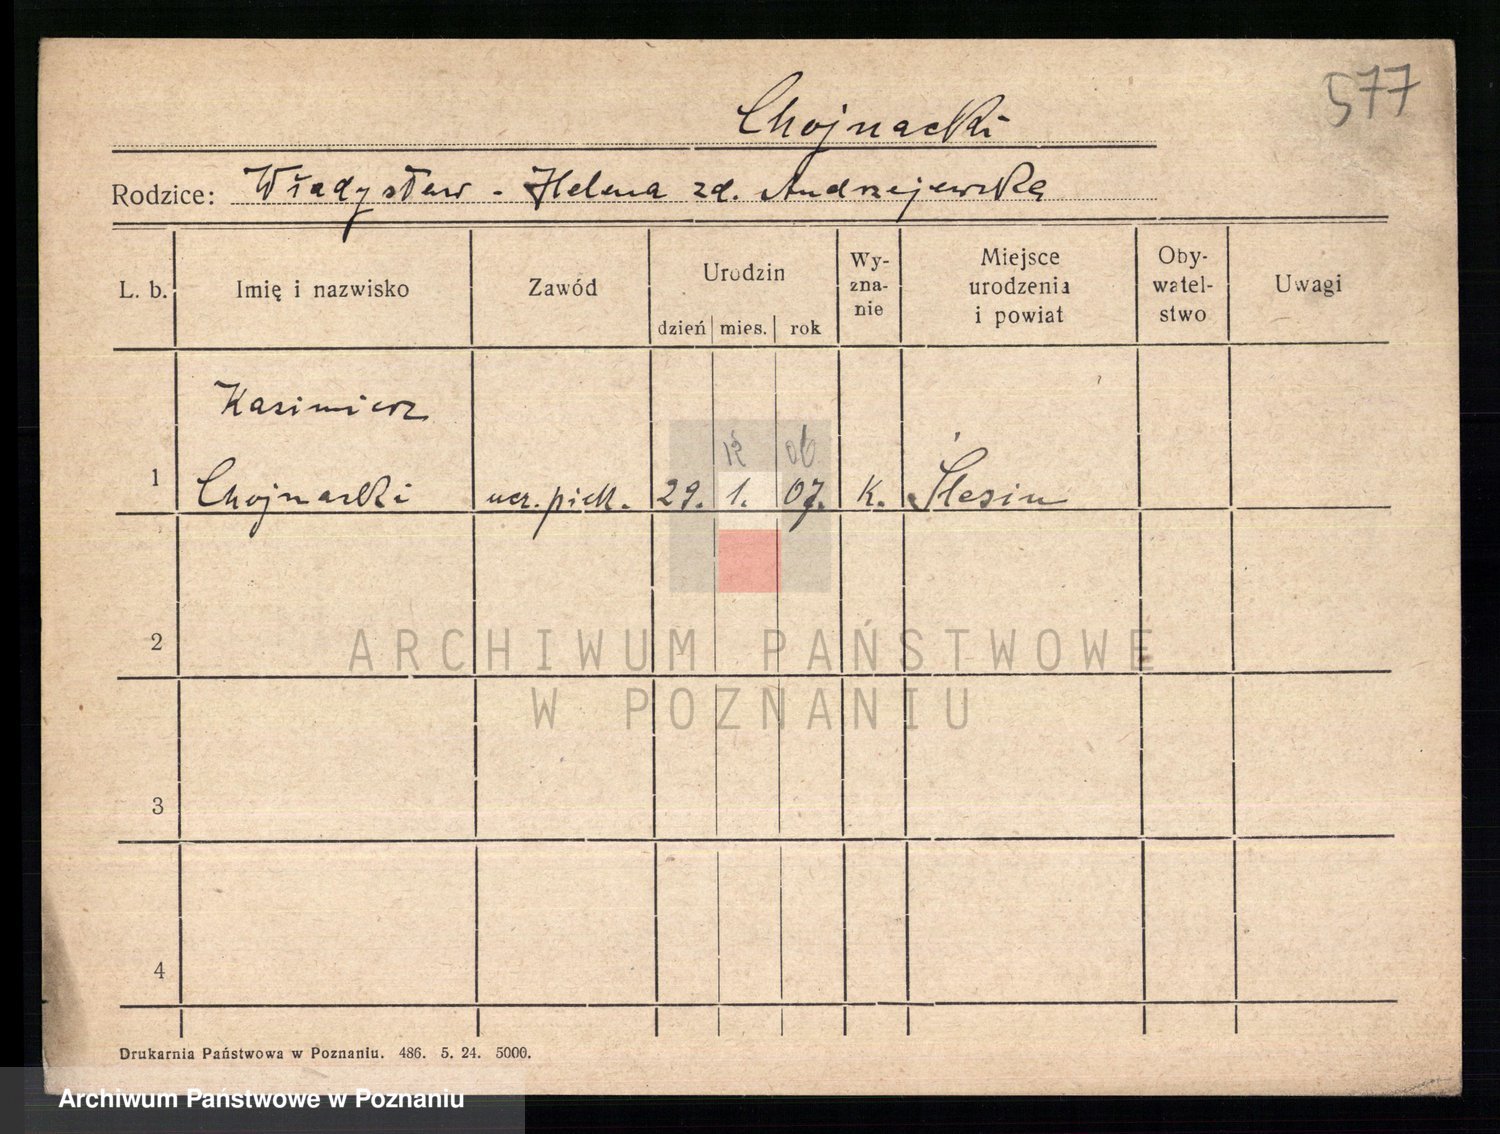 577
Chojnacki
Rodzice: Władysław - Helena zd. Andrzejewska
L. b. Imię i nazwisko Zawód Urodzin dzień mies. rok Wy-zna-nie Miejsce urodzenia i powiat Oby-watel-stwo Uwagi
Kazimierz
1 Chojnacki ucz. piek. 29. 1. 07. K. Ślesin
2
ARCHIWUM PAŃSTWOWE
W POZNANIU
3
4
Drukarnia Państwowa w Poznaniu. 486. 5. 24. 5000.
Archiwum Państwowe w Poznaniu